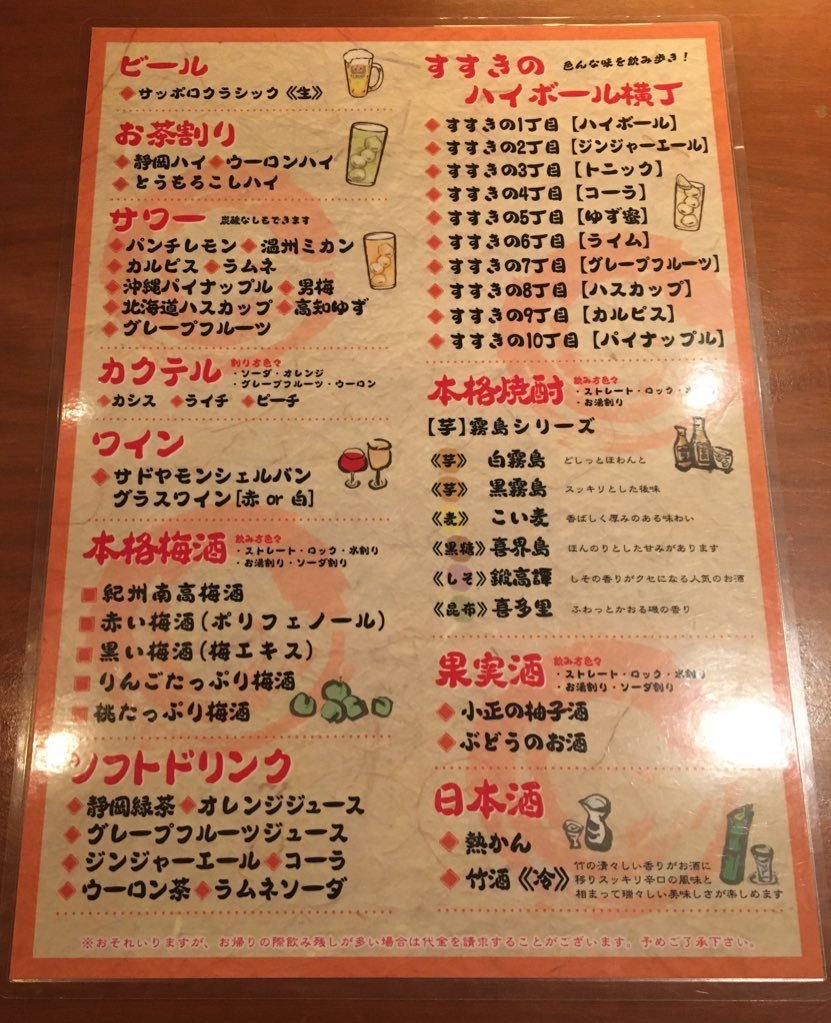 ビール
◆サッポロクラシック《生》
お茶割り
◆静岡ハイ◆ウーロンハイ
◆とうもろこしハイ
サワー 炭酸なしもできます
◆パンチレモン◆温州ミカン
◆カルピス◆ラムネ
◆沖縄パイナップル◆男梅
◆北海道ハスカップ◆高知ゆず
◆グレープフルーツ
カクテル 割り方色々
・ソーダ・オレンジ
・グレープフルーツ・ウーロン
◆カシス ◆ライチ ◆ピーチ
ワイン
◆サドヤモンシェルバン
グラスワイン[赤 or 白]
本格梅酒 飲み方色々
・ストレート・ロック・水割り
・お湯割り・ソーダ割り
■紀州南高梅酒
■赤い梅酒(ポリフェノール)
■黒い梅酒(梅エキス)
■りんごたっぷり梅酒
■桃たっぷり梅酒
ソフトドリンク
◆静岡緑茶◆オレンジジュース
◆グレープフルーツジュース
◆ジンジャーエール◆コーラ
◆ウーロン茶◆ラムネソーダ
すすきの 色んな味を飲み歩き!
ハイボール横丁
◆すすきの1丁目【ハイボール】
◆すすきの2丁目【ジンジャーエール】
◆すすきの3丁目【トニック】
◆すすきの4丁目【コーラ】
◆すすきの5丁目【ゆず蜜】
◆すすきの6丁目【ライム】
◆すすきの7丁目【グレープフルーツ】
◆すすきの8丁目【ハスカップ】
◆すすきの9丁目【カルピス】
◆すすきの10丁目【パイナップル】
本格焼酎 飲み方色々
・ストレート・ロック・
・お湯割り
【芋】霧島シリーズ
《芋》 白霧島 どしっとほわんと
《芋》 黒霧島 スッキリとした後味
《麦》 こい麦 香ばしく厚みのある味わい
《黒糖》喜界島 ほんのりとした甘みがあります
《しそ》鍛高譚 しその香りがクセになる人気のお酒
《昆布》喜多里 ふわっとかおる磯の香り
果実酒 飲み方色々
・ストレート・ロック・水割り
・お湯割り・ソーダ割り
◆小正の柚子酒
◆ぶどうのお酒
日本酒
◆熱かん
◆竹酒《冷》 竹の清々しい香りがお酒に
移りスッキリ辛口の風味と
相まって瑞々しい美味しさが楽しめます
※おそれいりますが、お帰りの際飲み残しが多い場合は代金を請求することがございます。予めご了承下さい。